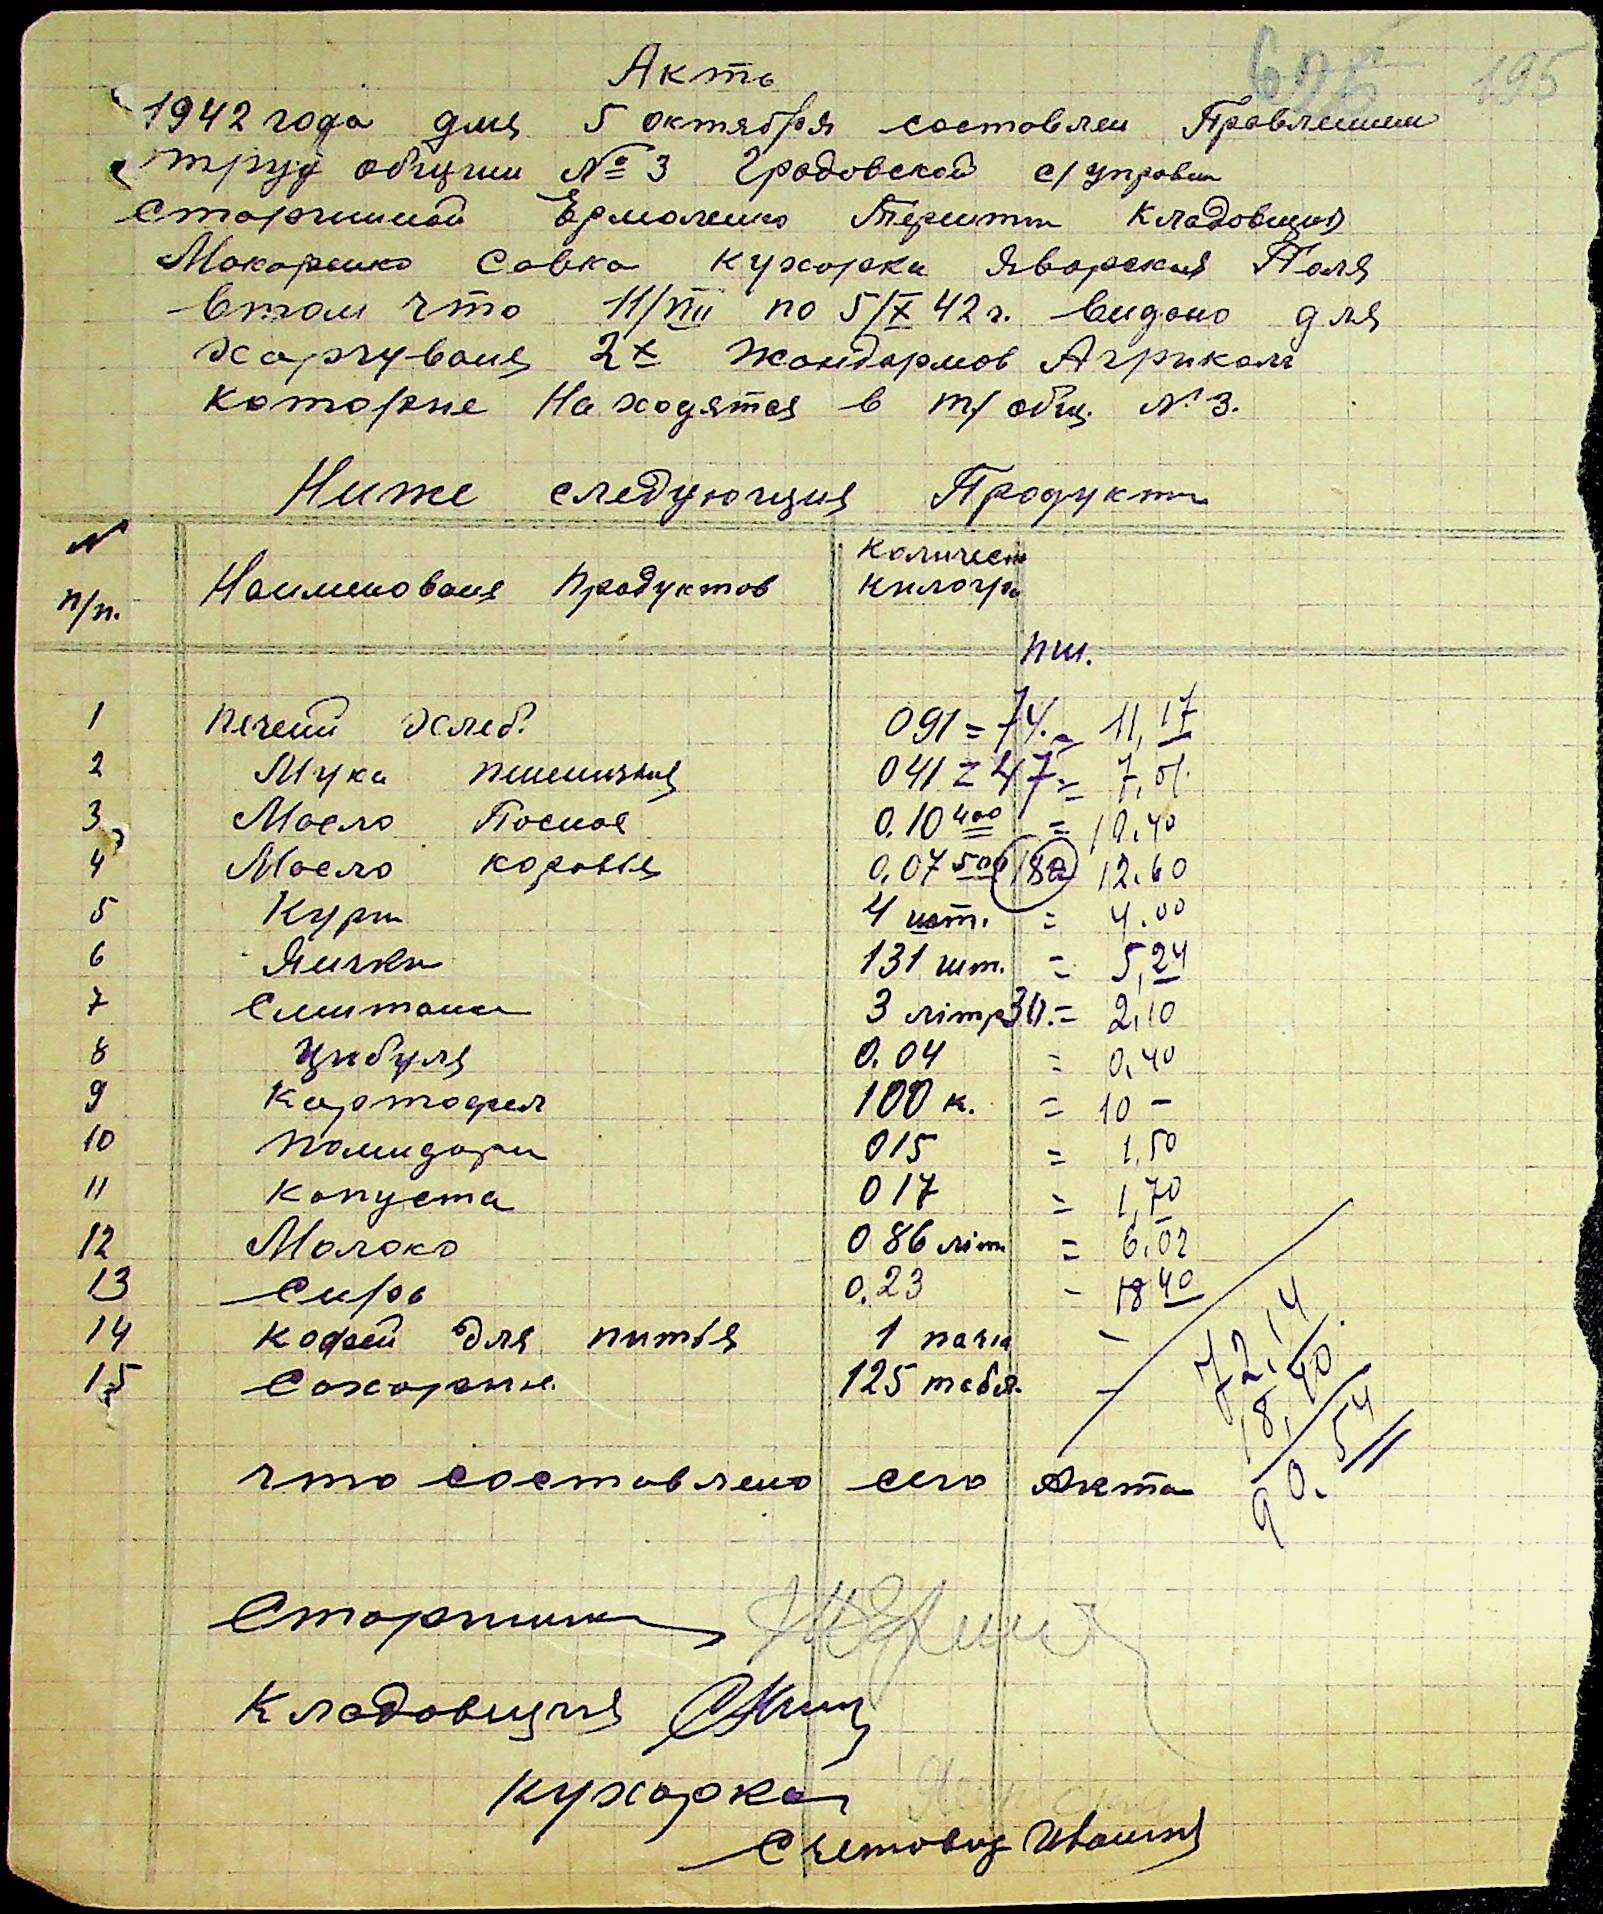 Актъ
195
1942 года дня 5 октября составлен Правлением
труд общини № 3 Градовской с/управи
Старшиной Ермоленко Терити Кладовщик
Макаренко Савка Кухарки Яворская Поля
втом что 11/VIII по 5/X 42 г. видано для
харчуваня 2х жандармов Агриколи
которие Находятся в т/общ. № 3.
Ниже следующия Продукти
№ п/п. Наименования Продуктов Количест килогр
пш.
1 печений хлеб. 091 = 74. = 11,17
2 Мука пшеничная 041 = 47 = 7,01
3 Масло Посное 0.10 400 = 10.40
4 Масло коровья 0,07 500 180 12.60
5 Кури 4 шт. = 4.00
6 Яички 131 шт. = 5,24
7 Смитани 3 літр 30. = 2,10
8 Цибуля 0.04 = 0,40
9 Картофел 100 к. = 10 –
10 помидори 015 = 1,50
11 Капуста 017 = 1,70
12 Молоко 086 літ = 6,02
13 Сиръ 0.23 - 18 40
14 кофей для питья 1 пачка -
15 Сахарин. 125 табл. -
72,14
18,40
90.54
что составлено сего Акта
Старшина
Кладовщик
Кухарка
Счетовод Ивашин